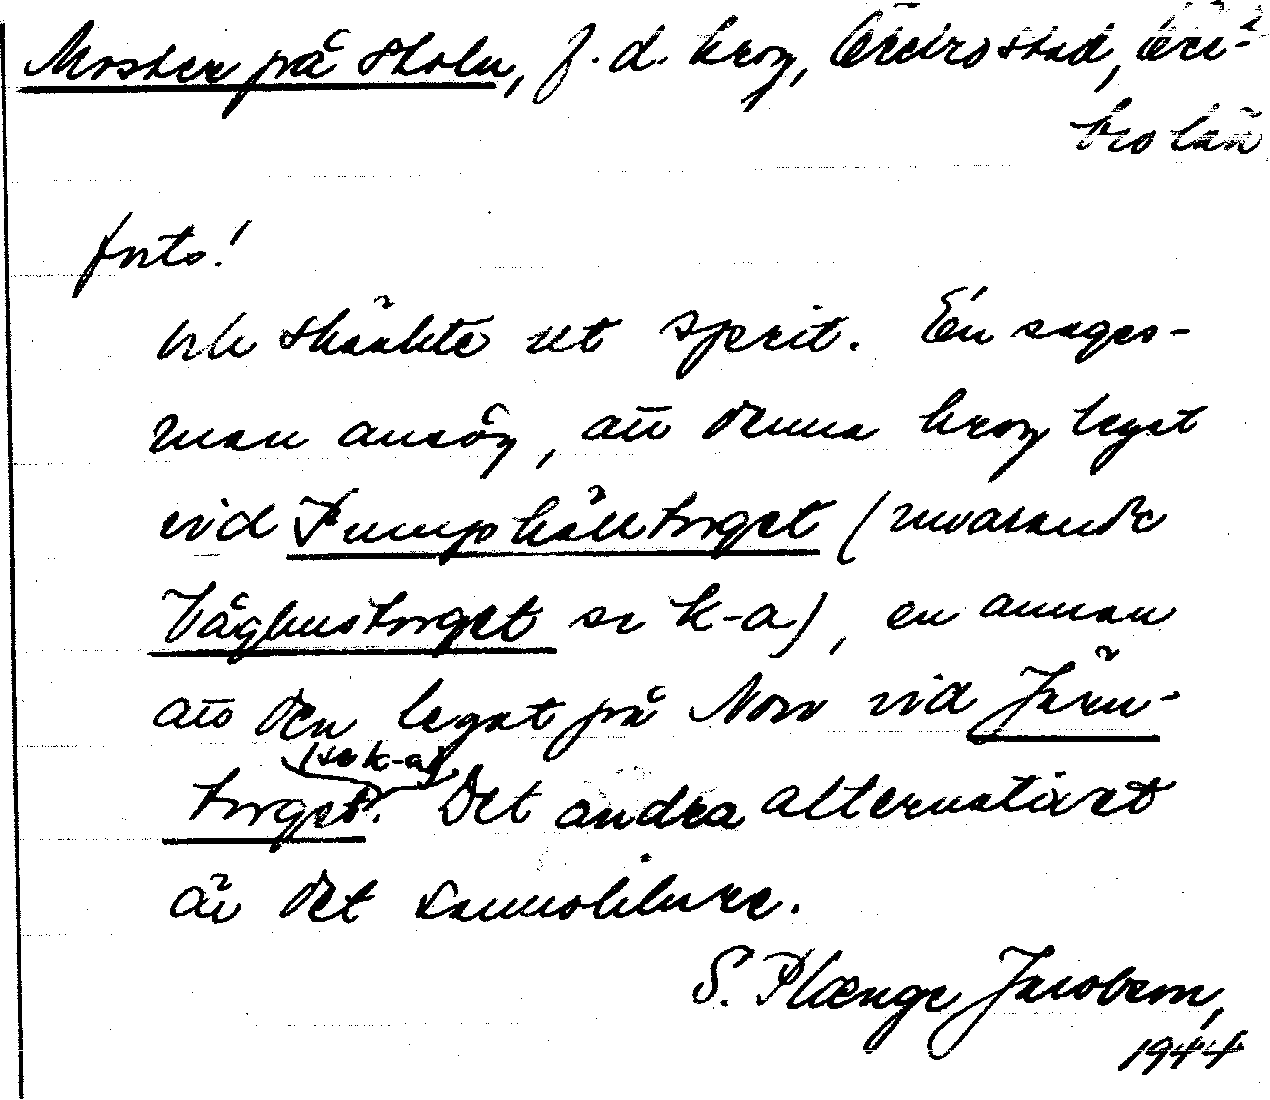 Moster på Skoln, f.d. krog, Örebro stad, Öre-
bro län
forts!
och skänkte ut sprit. En sages-
man ansåg, att denna krog legat
vid Pumphälltorget (nuvarande
Våghustorget se k-a), en annan
att den legat på Norr vid Järn-
(se k-a)
torget. Det andra alternativet
är det sannolikare.
S. Plænge Jacobson,
1944